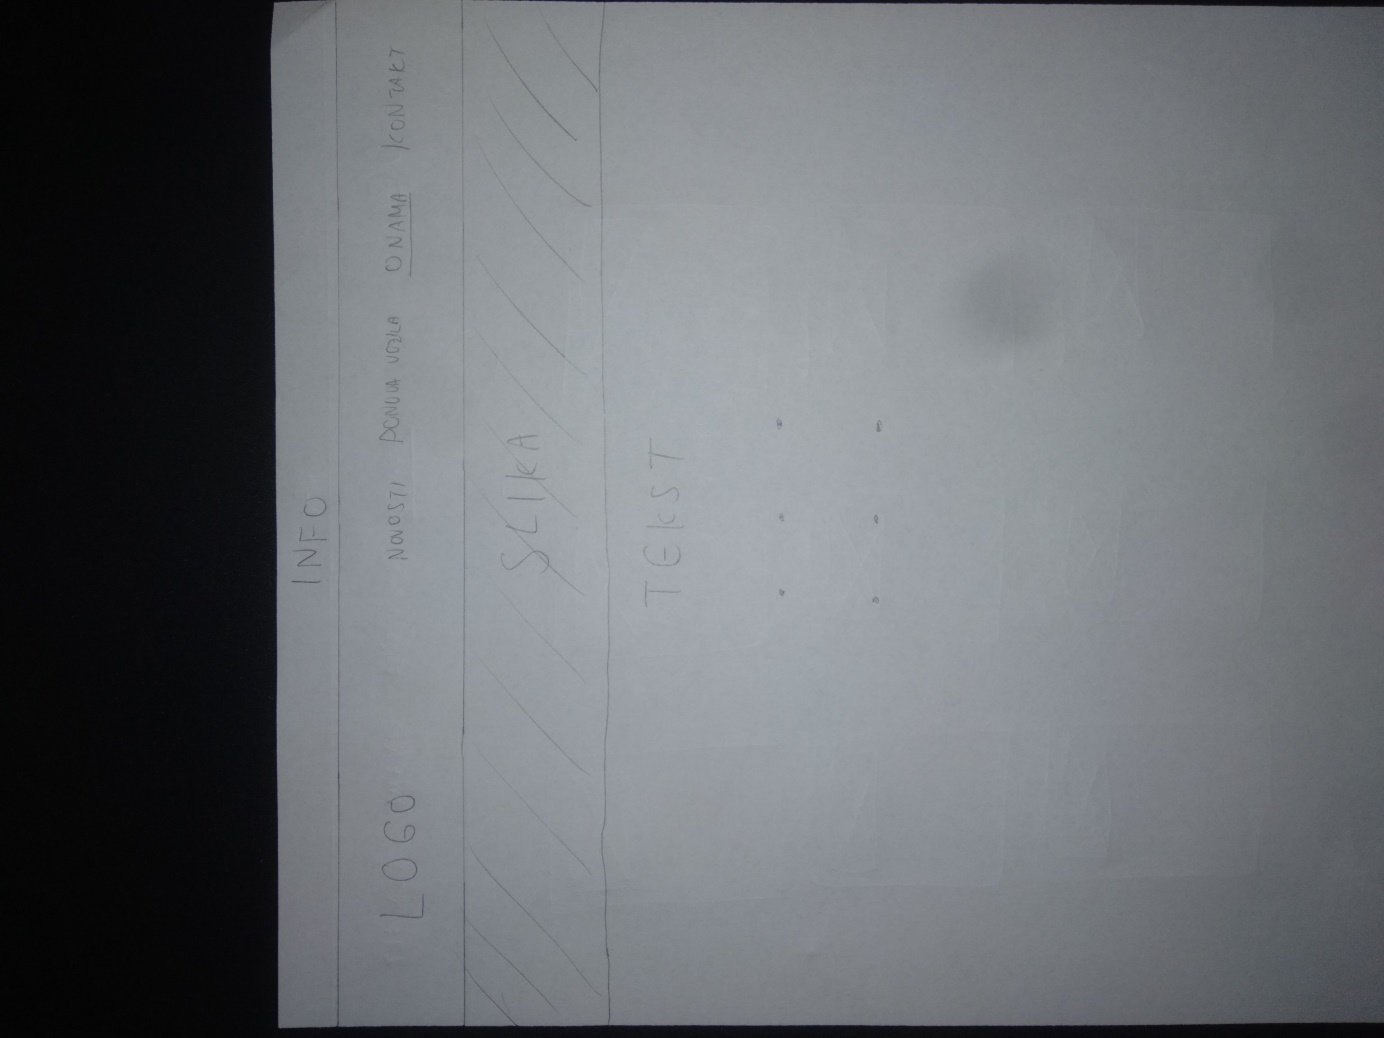 INFO
LOGO NOVOSTI PONUDA VOZILA O NAMA KONTAKT
SLIKA
TEKST